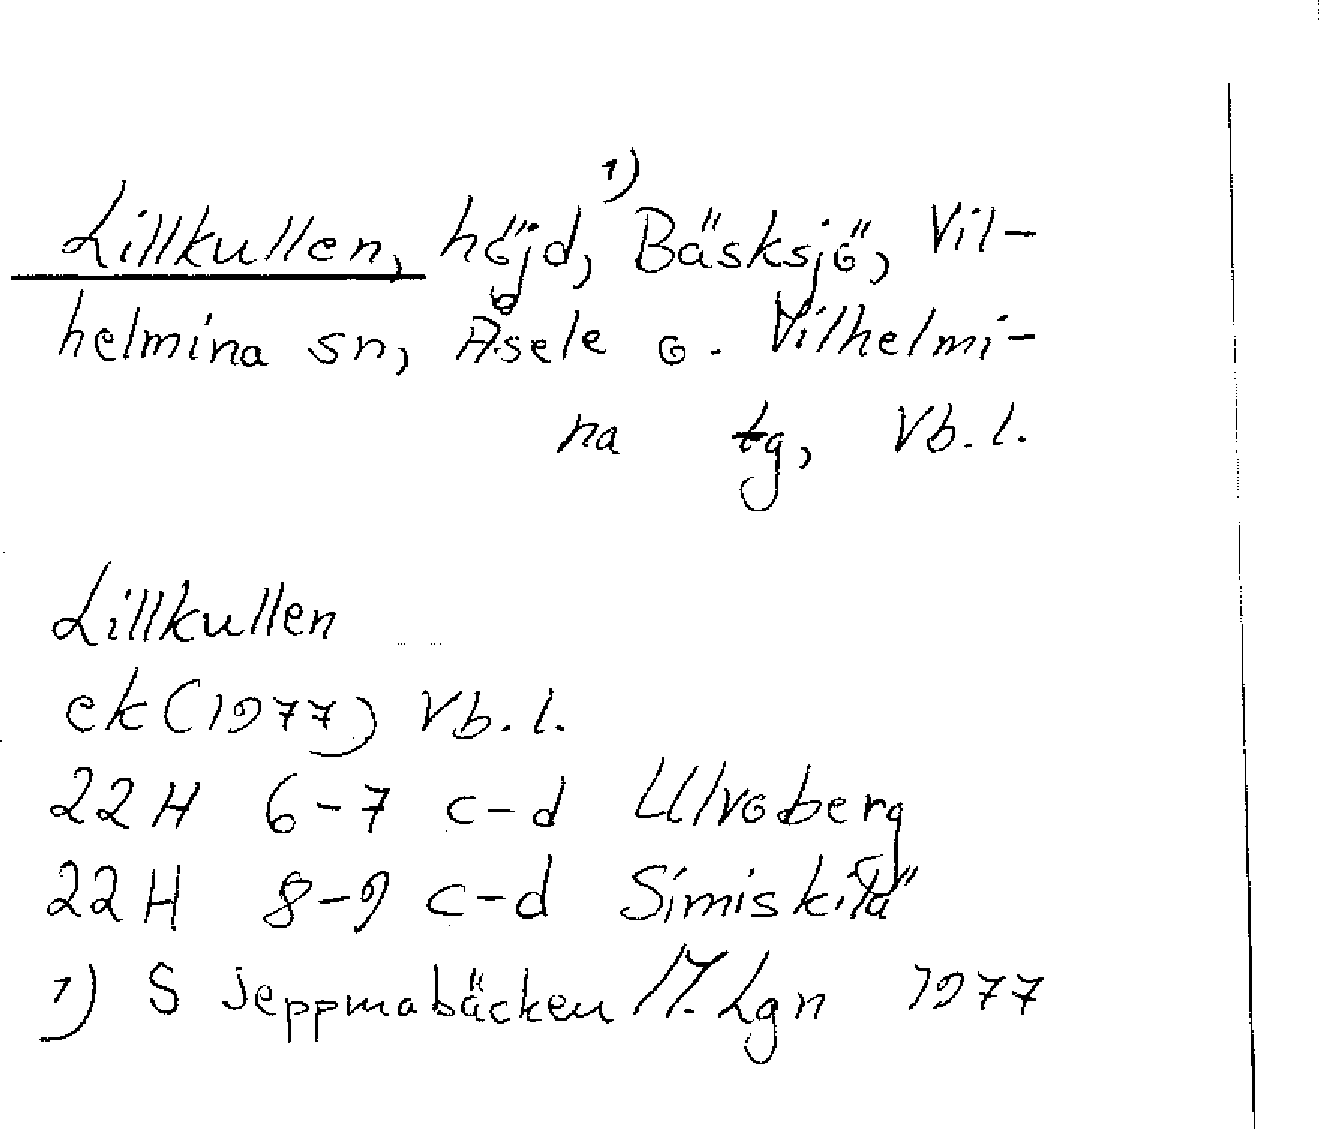 Lillkullen, höjd,¹⁾ Bäsksjö, Vil-
helmina sn, Åsele o. Vilhelmi-
na tg, Vb.l.
Lillkullen
ek (1977) Vb.l.
22H 6-7 c-d Ulvoberg
22H 8-9 c-d Simiskilä
1) S Jeppmabäcken M. Lgn 1977